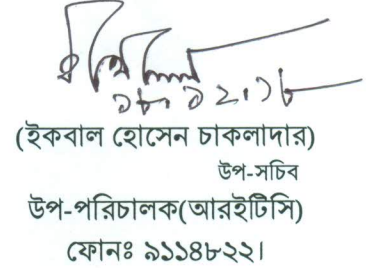 ১৮.১২.১৮
(ইকবাল হোসেন চাকলাদার)
উপ-সচিব
উপ-পরিচালক(আরইটিসি)
ফোনঃ ৯১১৪৮২২।